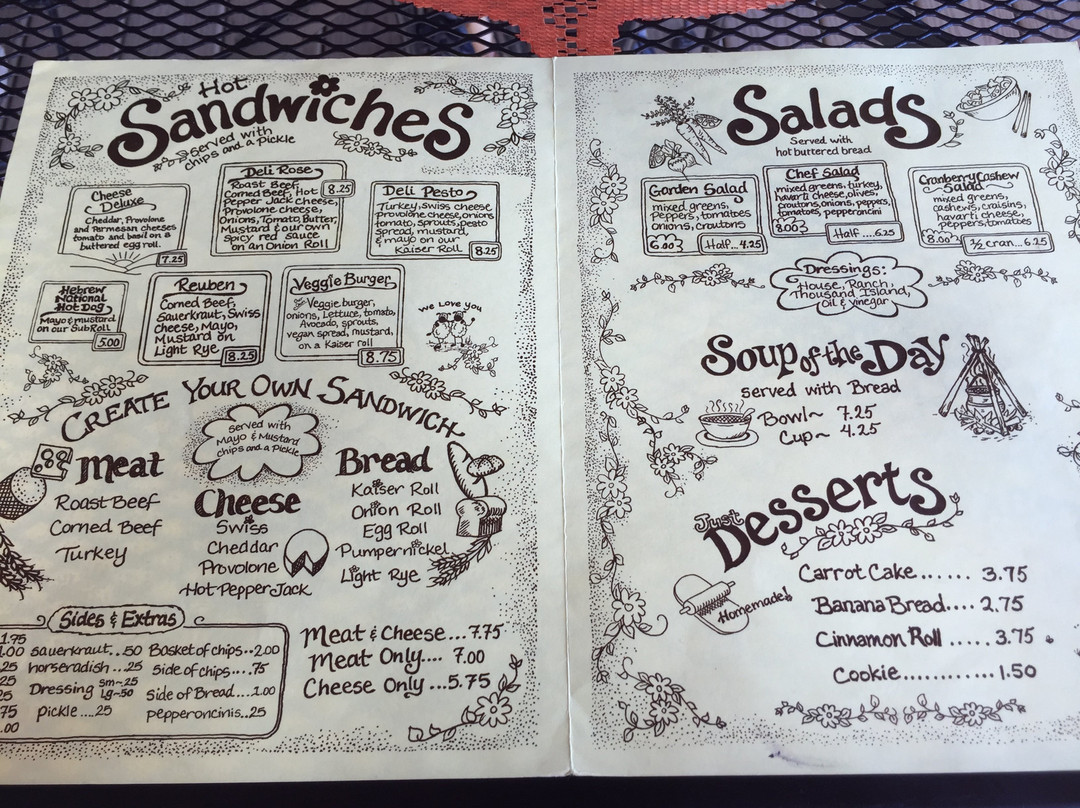 Hot
Sandwiches
served with
chips and a pickle
Cheese
Deluxe
Cheddar, Provolone
and Parmesan cheeses
tomato and basil on a
buttered egg roll.
7.25
Deli Rose
Roast Beef,
Corned Beef, Hot
Pepper Jack Cheese,
Provolone cheese,
Onions, Tomato, Butter,
Mustard & our own
Spicy red sauce
on an Onion Roll
8.25
Deli Pesto
Turkey, Swiss cheese
provolone cheese, onions
tomato, sprouts, pesto
spread, mustard,
& mayo on our
Kaiser Roll
8.25
Hebrew
National
Hot Dog
Mayo & mustard
on our Sub Roll
5.00
Reuben
Corned Beef,
Sauerkraut, Swiss
Cheese, Mayo,
Mustard on
Light Rye
8.25
Veggie Burger
Veggie burger,
onions, Lettuce, tomato,
Avocado, sprouts,
vegan spread, mustard,
on a Kaiser roll
8.75
We Love you
Create Your Own Sandwich
served with
Mayo & Mustard
chips and a Pickle
Meat
Roast Beef
Corned Beef
Turkey
Cheese
Swiss
Cheddar
Provolone
Hot Pepper Jack
Bread
Kaiser Roll
Onion Roll
Egg Roll
Pumpernickel
Light Rye
Sides & Extras
1.75
1.00
25
25
25
75
.00
sauerkraut...50
horseradish...25
Dressing sm~.25
Lg~.50
pickle....25
Basket of chips..2.00
side of chips....75
side of Bread....1.00
pepperoncinis..25
Meat & Cheese...7.75
Meat Only.... 7.00
Cheese Only...5.75
Salads
Served with
hot buttered bread
Garden Salad
mixed greens,
peppers, tomatoes
onions, croutons
6.00
Half...4.25
Chef Salad
mixed greens, turkey,
havarti cheese, olives,
croutons, onions, peppers,
tomatoes, pepperoncini
8.00
Half....6.25
Cranberry Cashew
Salad
mixed greens,
cashews, craisins,
havarti cheese,
peppers, tomatoes
8.00
½ cran...6.25
Dressings:
House, Ranch,
Thousand Island,
Oil & vinegar
Soup of the Day
served with Bread
Bowl~ 7.25
Cup~ 4.25
Just
Desserts
Homemade!
Carrot Cake...... 3.75
Banana Bread.... 2.75
Cinnamon Roll ..... 3.75
Cookie............1.50